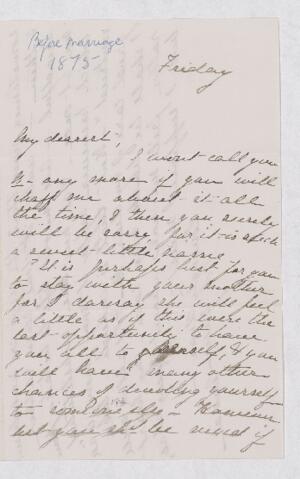 Before marriage
1875
Friday
My dearest,
I wont call you
N- any more if you will
chaff me about it all
the time, & then you surely
will be sorry for it is such
a sweet little name.
It is perhaps best for you
to stay with your mother
for I daresay she will feel
a little as if this were the
last opportunity to have
you all to & you
will have many other
chances of devoting yourself
to someone else - However
be if